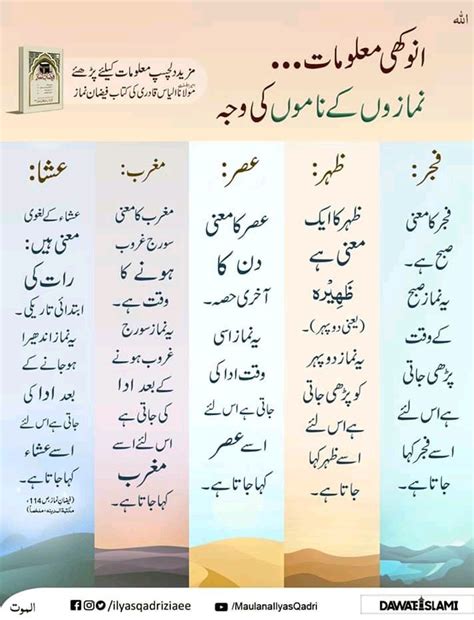 اللہ
انوکھی معلومات...
نمازوں کے ناموں کی وجہ
مزید دلچسپ معلومات کیلئے پڑھئے
مولانا الیاس قادری کی کتاب فیضانِ نماز
فجر:
فجر کا معنی
صبح ہے۔
یہ نماز صبح
کے وقت
پڑھی جاتی
ہے اس لئے
اسے فجر کہا
جاتا ہے۔
ظہر:
ظہر کا ایک
معنی ہے
ظَهِيْرَه
(یعنی دوپہر)۔
یہ نماز دوپہر
کو پڑھی جاتی
ہے اس لئے
اسے ظہر کہا
جاتا ہے۔
عصر:
عصر کا معنی
دن کا
آخری حصہ۔
یہ نماز اسی
وقت ادا کی
جاتی ہے اس لئے
اسے عصر
کہا جاتا ہے۔
مغرب:
مغرب کا معنی
سورج غروب
ہونے کا
وقت ہے۔
یہ نماز سورج
غروب ہونے
کے بعد ادا
کی جاتی ہے
اس لئے اسے
مغرب
کہا جاتا ہے۔
عشا:
عشاء کے لغوی
معنی ہیں:
رات کی
ابتدائی تاریکی۔
یہ نماز اندھیرا
ہو جانے کے
بعد ادا کی
جاتی ہے اس لئے
اسے عشاء
کہا جاتا ہے۔
(فیضان نماز، ص 114،
مکتبۃ المدینہ، ملخصاً)
الموت
/ilyasqadriziaee
/MaulanaIlyasQadri
DAWATEISLAMI